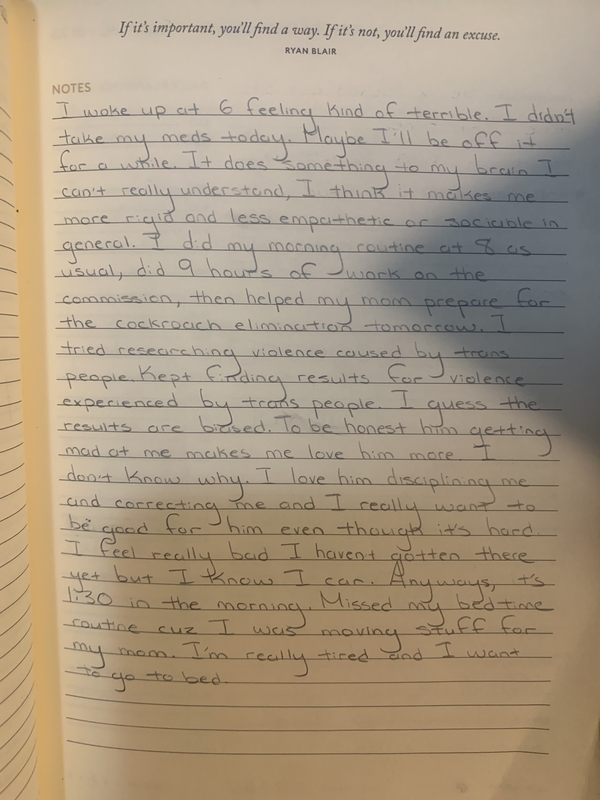 If it's important, you'll find a way. If it's not, you'll find an excuse.
RYAN BLAIR
NOTES
I woke up at 6 feeling kind of terrible. I didn't
take my meds today. Maybe I'll be off it
for a while. It does something to my brain I
can't really understand, I think it makes me
more rigid and less empathetic or sociable in
general. I did my morning routine at 8 as
usual, did 9 hours of work on the
commission, then helped my mom prepare for
the cockroach elimination tomorrow. I
tried researching violence caused by trans
people. Kept finding results for violence
experienced by trans people. I guess the
results are biased. To be honest him getting
mad at me makes me love him more. I
don't know why. I love him disciplining me
and correcting me and I really want to
be good for him even though it's hard.
I feel really bad I haven't gotten there
yet but I know I can. Anyways, it's
1:30 in the morning. Missed my bedtime
routine cuz I was moving stuff for
my mom. I'm really tired and I want
to go to bed.